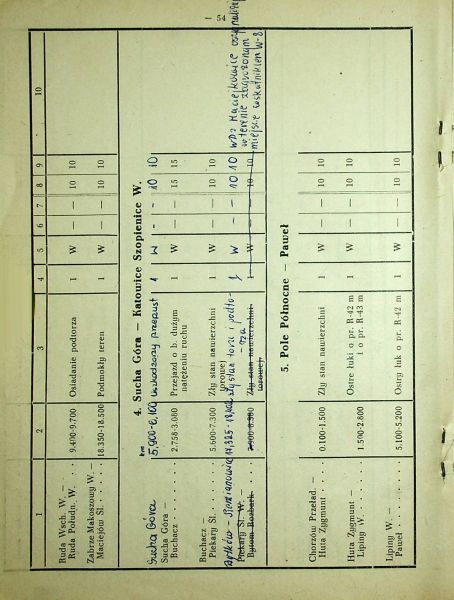 — 54
1 2 3 4 5 6 7 8 9 10
Ruda Wsch. W. —
Ruda Połudn. W. . . . 9.400-9.700 Osiadanie podtorza 1 W — — 10 10
Zabrze Makoszowy W. —
Maciejów Śl. . . . . . 18.350-18.500 Podmokły teren 1 W — — 10 10
4. Sucha Góra — Katowice Szopienice W.
Sucha Góra km 5,900-6,100 uszkodzony przepust 1 W - - 10 10
Sucha Góra —
Buchacz . . . . . . . . 2.758-3.080 Przejazd o b. dużym
natężeniu ruchu 1 W — — 15 15
Buchacz —
Piekary Śl. . . . . . . 5.600-7.300 Zły stan nawierzchni
torowej 1 W — — 10 10
- Siemianowice zły stan toru i podtorza 1 W - - 10 10
WP2 Maciejkowice
w terenie
miejsce wskaźnikiem W-8
Piekary Śl. W. —
Bytom Rozbark . . . 7.900-8.380 Zły stan nawierzchni
torowej 1 W — — 10 10
5. Pole Północne — Paweł
Chorzów Przeład. —
Huta Zygmunt . . . . 0.100-1.500 Zły stan nawierzchni 1 W — — 10 10
Huta Zygmunt —
Lipiny W. . . . . . . 1.500-2.800 Ostre łuki o pr. R-42 m
i o pr. R-43 m 1 W — — 10 10
Lipiny W. —
Paweł . . . . . . . . 5.100-5.200 Ostry łuk o pr. R-42 m 1 W — — 10 10